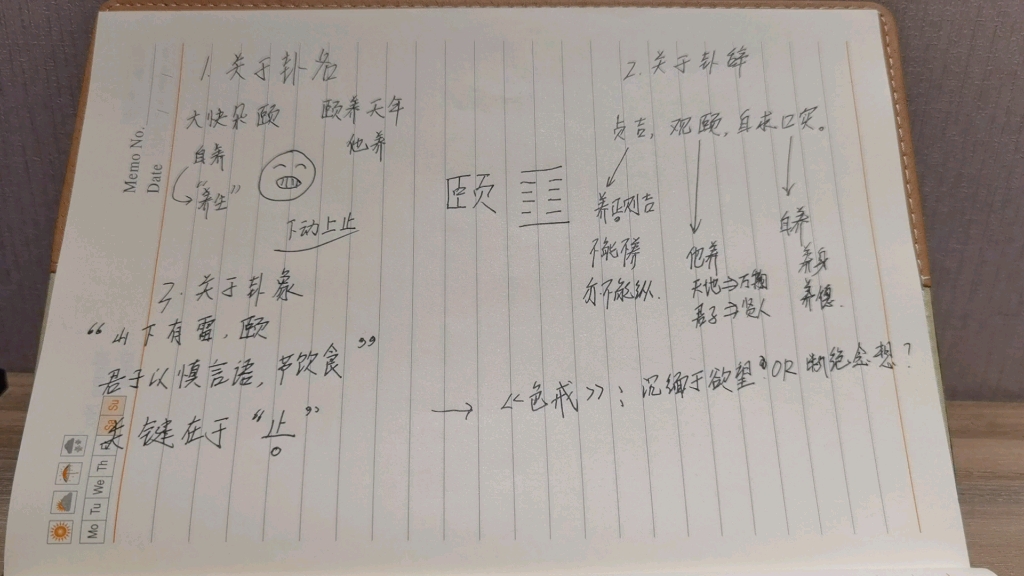 1. 关于卦名
大快朵颐 颐养天年
自养 他养
"养生"
下动上止
颐
2. 关于卦辞
贞吉，观颐，自求口实。
养正则吉
不能不养
亦不能纵.
他养
天地⇒万物
君子⇒贤人
自养
养身
养德.
3. 关于卦象
"山下有雷，颐
君子以慎言语，节饮食"
关键在于"止"
→ 《色戒》：沉缅于欲望？OR 断绝念想？
Memo No.
Date
Mo Tu We Th Su